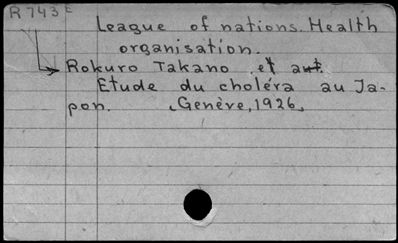 R 743 E
League of nations. Health
organisation.
Rokuro Takano et aut.
Etude du choléra au Ja-
pon. (Genève, 1926,